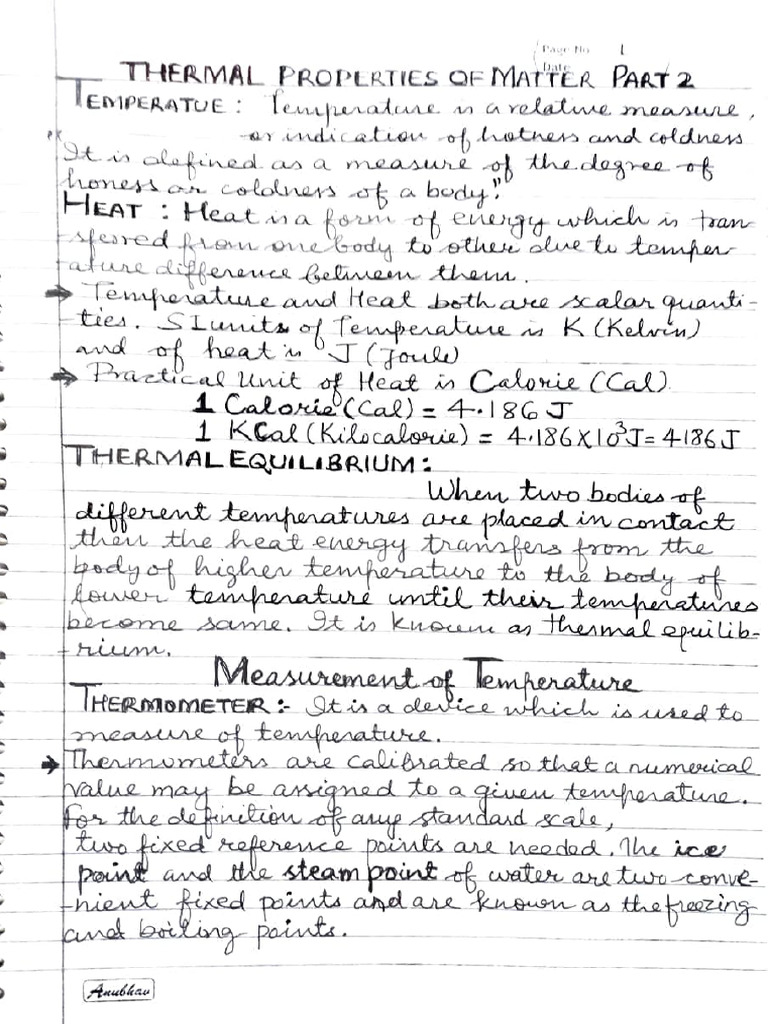 Page No 1
Date
THERMAL PROPERTIES OF MATTER PART 2
TEMPERATUE : Temperature is a relative measure,
or indication of hotness and coldness
"It is defined as a measure of the degree of
honess or coldness of a body."
HEAT : Heat is a form of energy which is tran-
-sferred from one body to other due to temper-
-ature difference between them.
→ Temperature and Heat both are scalar quanti-
ties. SI units of Temperature is K (Kelvin)
and of heat is J (Joule)
→ Practical Unit of Heat is Calorie (Cal)
1 Calorie (Cal) = 4.186 J
1 KCal (Kilocalorie) = 4.186X10³J = 4186J
THERMAL EQUILIBRIUM :
When two bodies of
different temperatures are placed in contact
then the heat energy transfers from the
body of higher temperature to the body of
lower temperature until their temperatures
become same. It is known as thermal equilib-
-rium.
Measurement of Temperature
THERMOMETER :- It is a device which is used to
measure of temperature.
→ Thermometers are calibrated so that a numerical
value may be assigned to a given temperature.
For the definition of any standard scale,
two fixed reference points are needed. The ice
point and the steam point of water are two conve-
-nient fixed points and are known as the freezing
and boiling points.
Anubhav